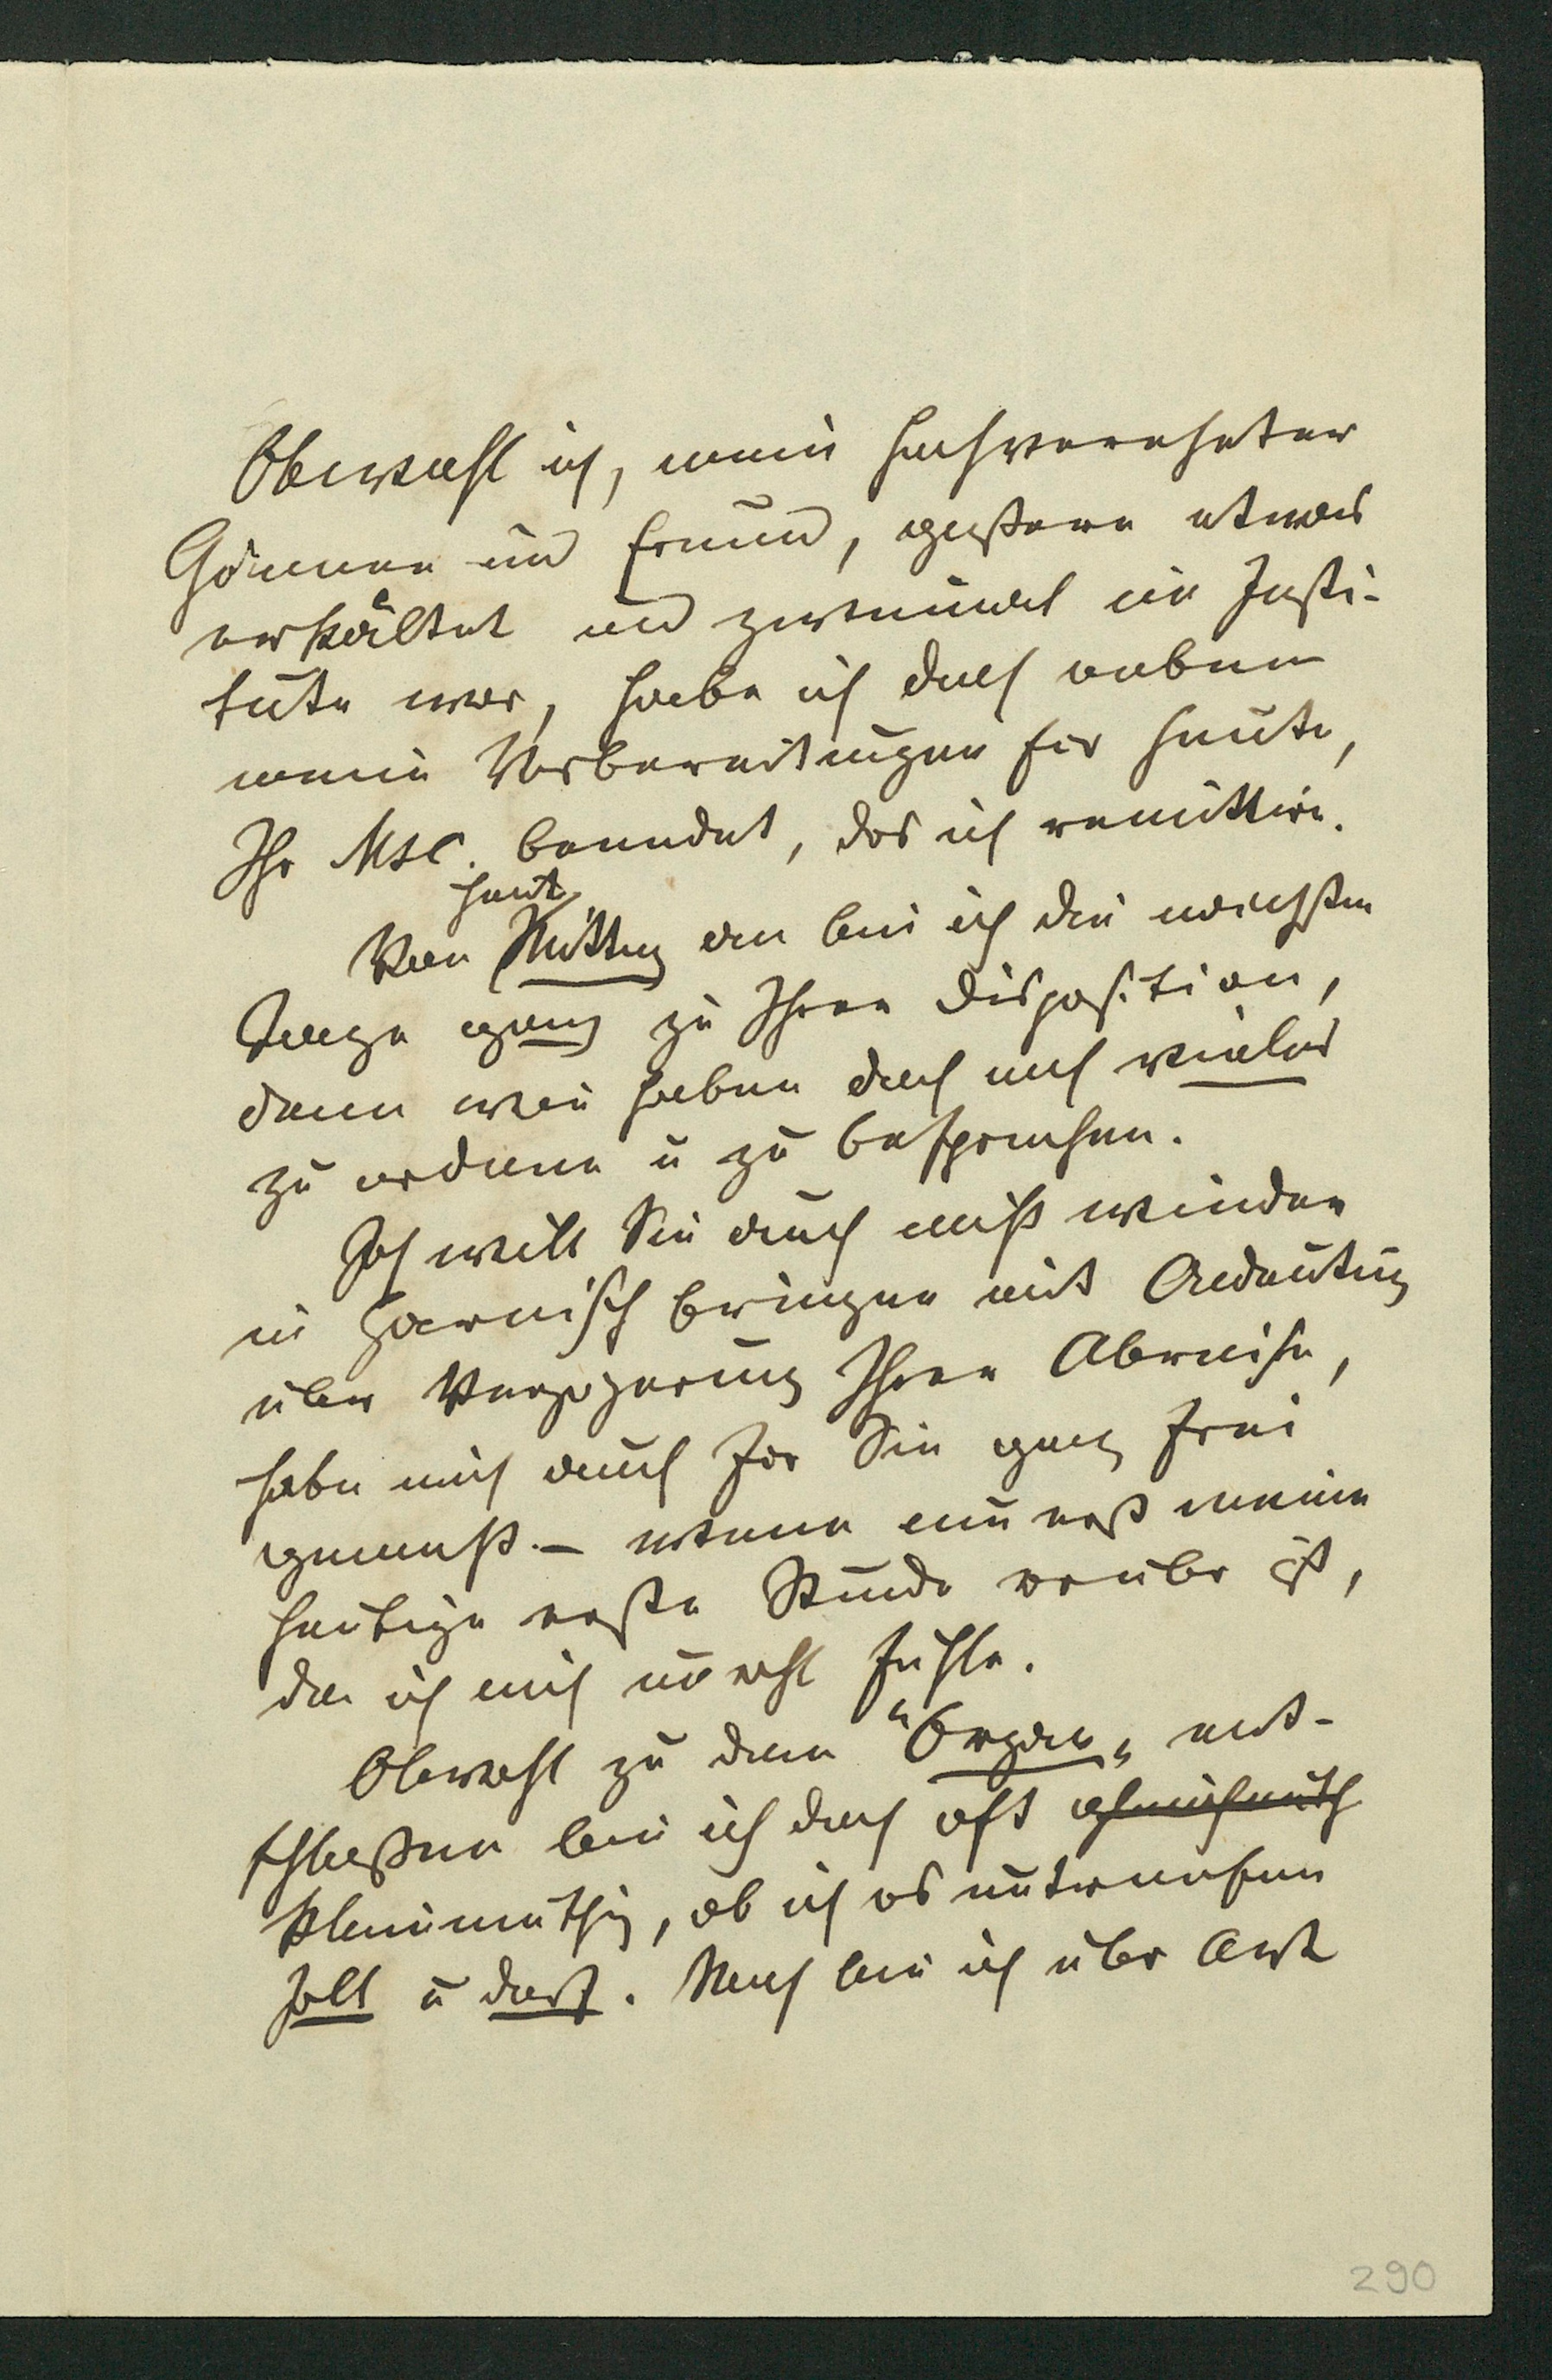 Obwohl ich, mein hochverehrter
Gönner und Freund, gestern etwas
erkältet und zweimal im Insti-
tute war, habe ich doch neben
meinen Vorbereitungen für heute,
Ihr Msc. beendet, das ich remittire.
heut
Von Mittag an bin ich die nächsten
Tage ganz zu Ihrer Disposition,
denn wir haben doch noch vieles
zu ordnen u zu besprechen.
Ich will Sie auch nicht wieder
in Harnisch bringen mit Andeutung
über Verzögerung Ihrer Abreise,
habe mich auch für Sie ganz frei
gemacht. – wenn nur erst meine
heutige erste Stunde vorüber ist,
da ich mich unwohl fühle.
Obwohl zu dem "Organ" ent-
schlossen bin ich doch oft
kleinmüthig, ob ich es unternehmen
soll u darf. Auch bin ich über Art
290